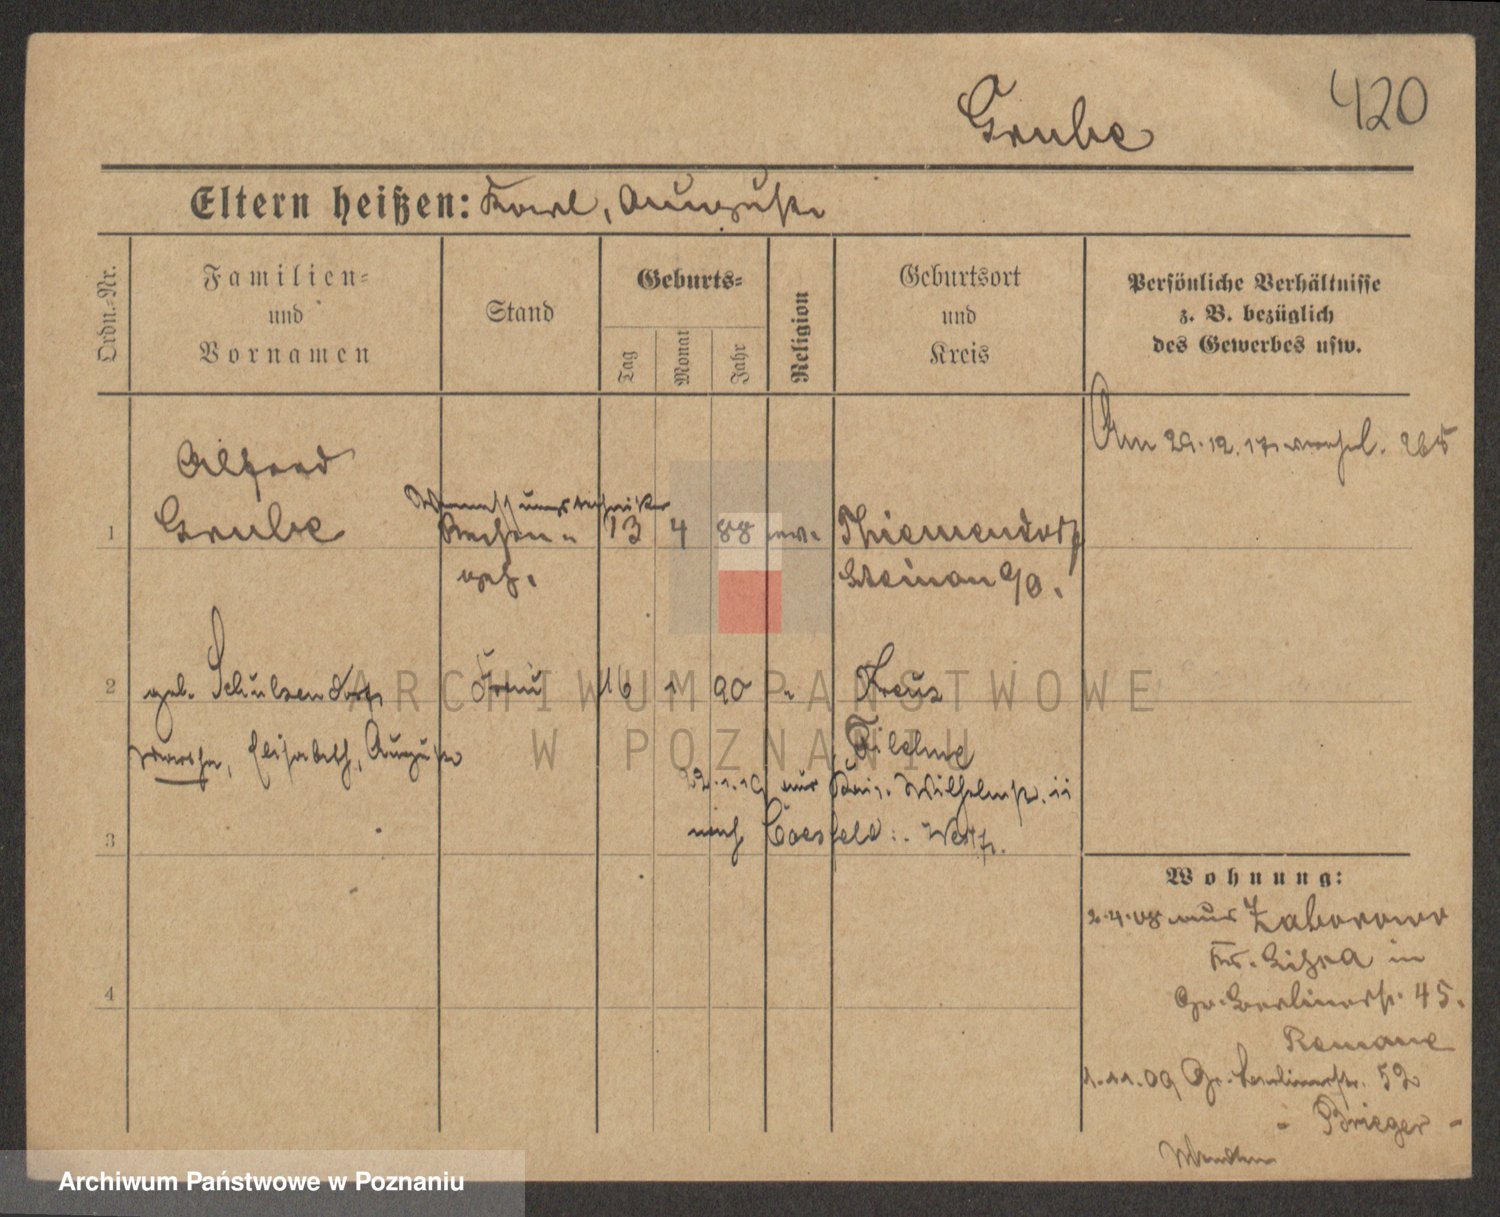 420
Grube
Eltern heißen: Karl, Auguste
Ordn.-Nr.
Familien-
und
Vornamen
Stand
Geburts-
Tag
Monat
Jahr
Religion
Geburtsort
und
Kreis
Persönliche Verhältnisse
z. B. bezüglich
des Gewerbes usw.
Am 29.12.17
Alfred
Vermessungstechniker
1 Grube Rechen- 13 4 88 ev. Thiemendorf
geh. Steinau a/O.
2 geb. Schulzendorf Frau 16 1 90 " Kreuz
Martha, Elisabeth, Auguste Filehne
22.1.19 aus Kais. Wilhelmstr. 11
nach Coesfeld i. Westf.
3
Wohnung:
2.4.08 aus Zaborowo
Kr. Lissa in
Gr. Berlinerstr. 45.
4
Romane
1.11.09 Gr. Berlinerstr. 52
- Brieger -
ARCHIWUM PAŃSTWOWE
W POZNANIU
Archiwum Państwowe w Poznaniu